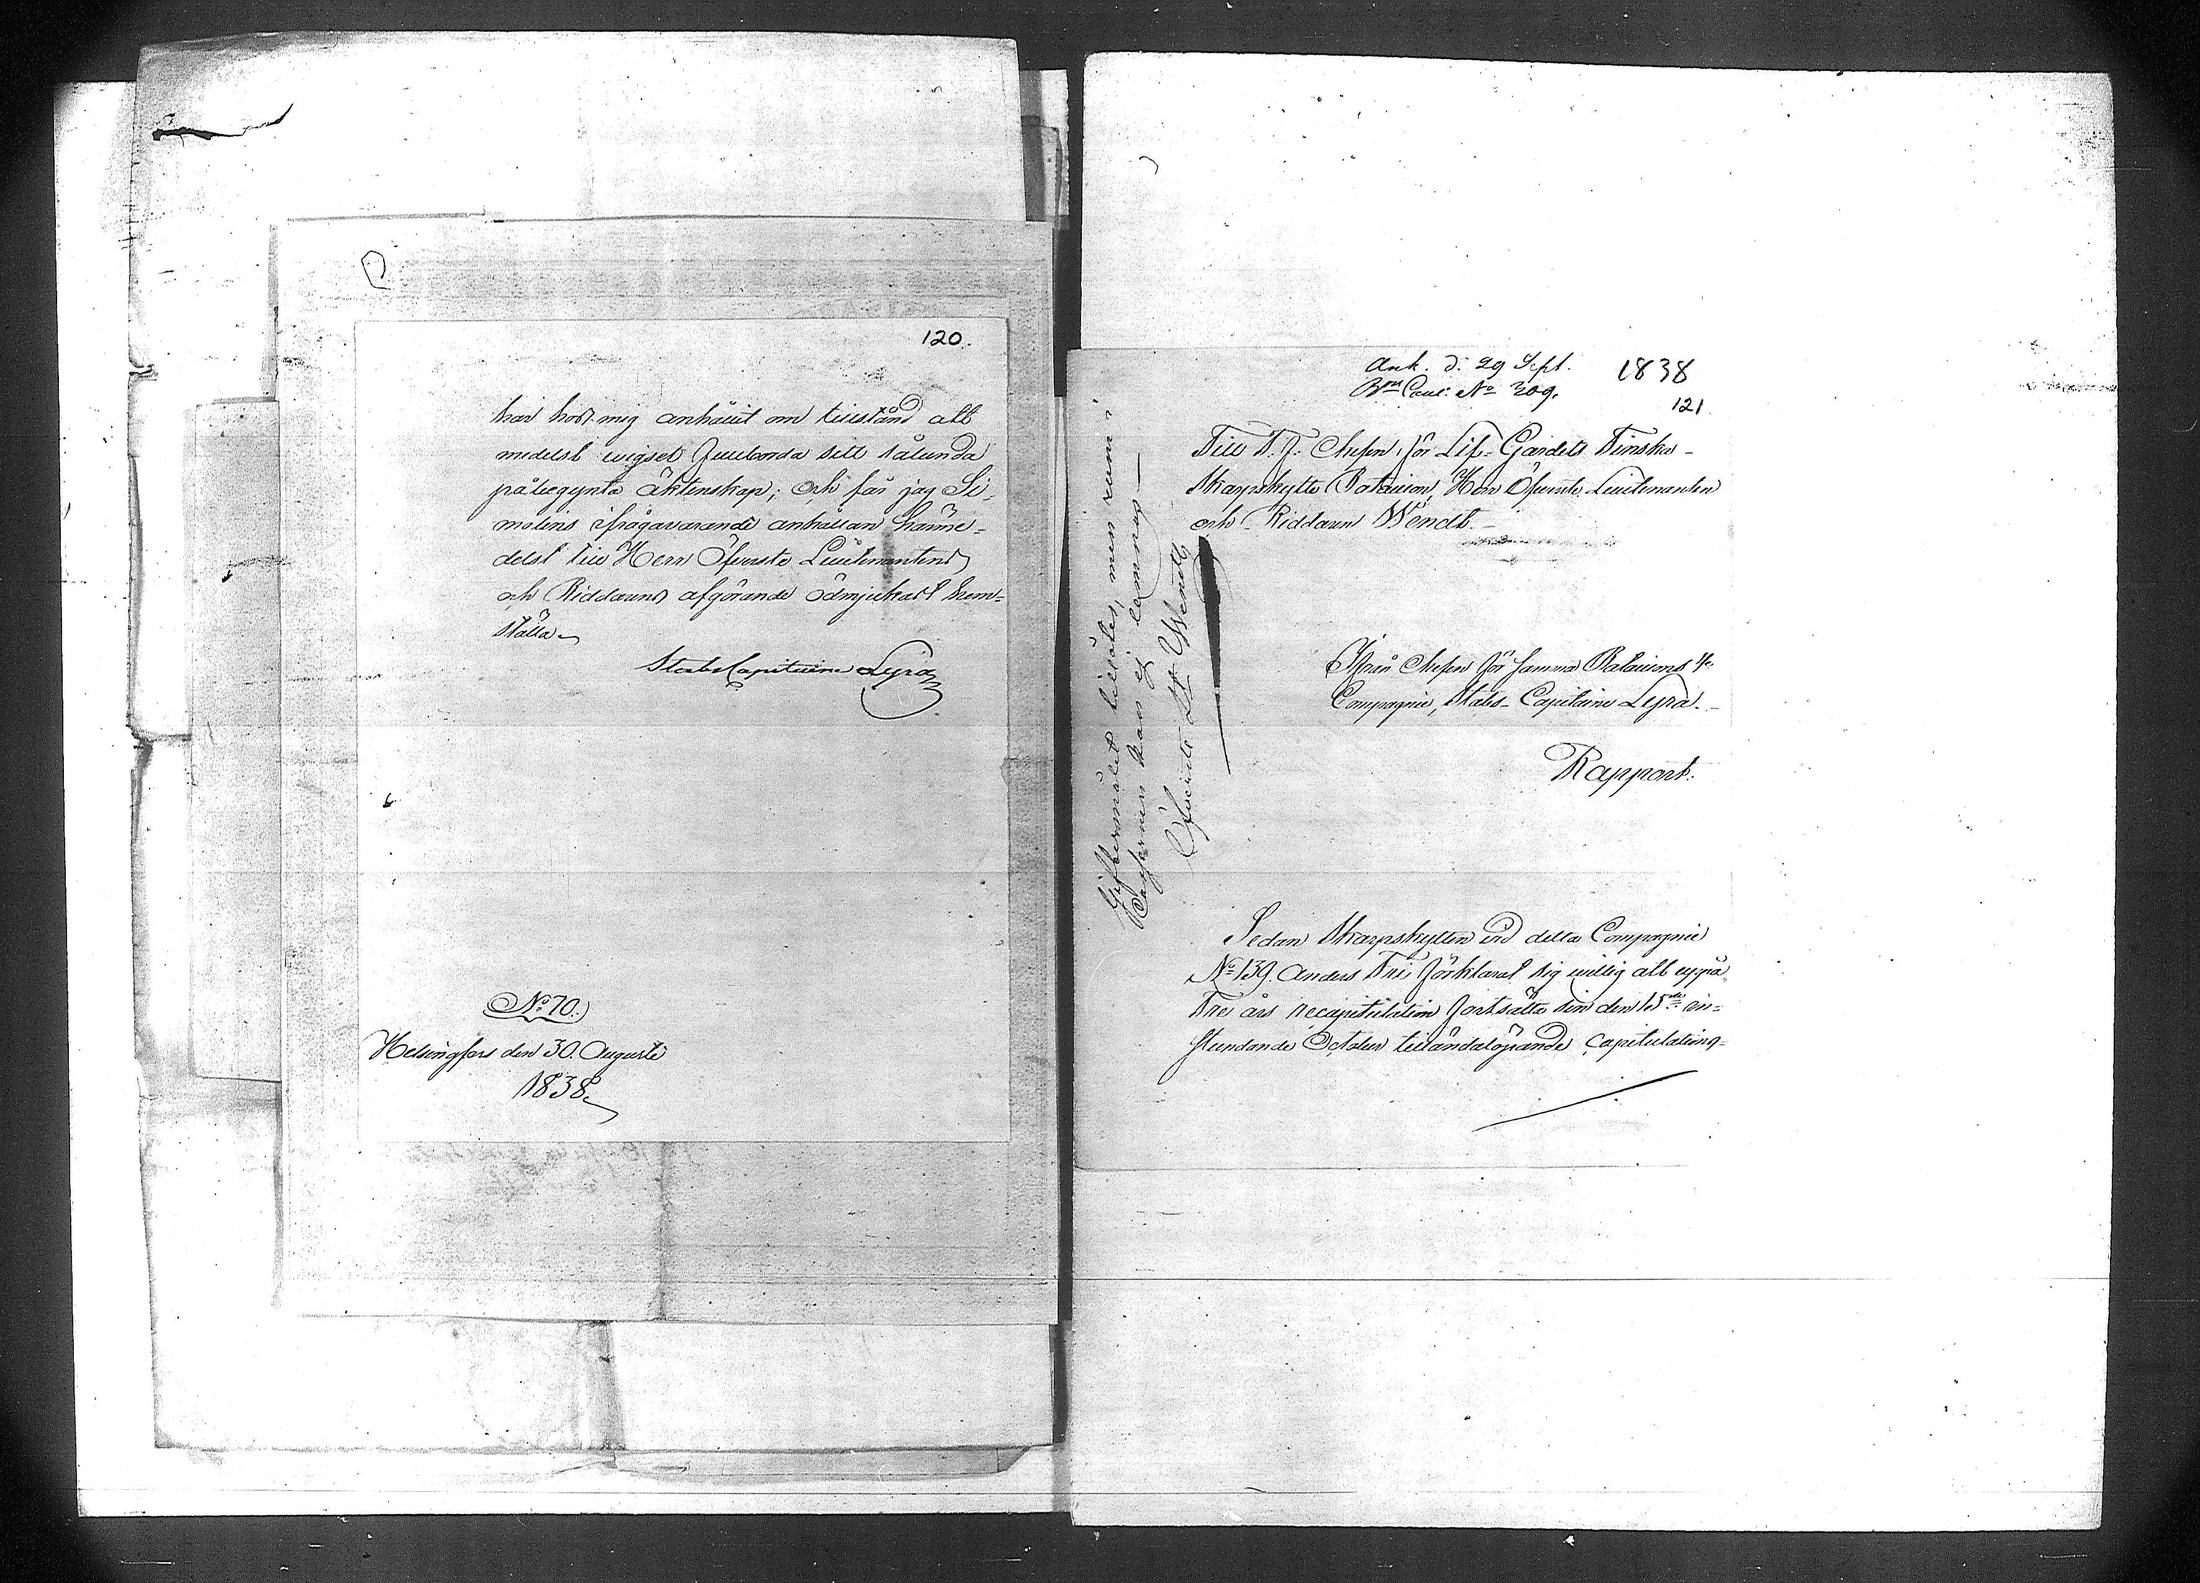 120.
har hos mig anhållit om tillstånd att
medelst wigsel fullborda sitt sålunda
påbegynta äktenskap; och får jag Si-
molins ifrågavarande anhållan härme-
delst till Herr Öfverste Lieutenantens
och Riddarens afgörande ödmjukast hem-
ställa.
Stabs Capitaine Lyra
No 70.
Helsingfors den 30. Augusti
1838.
Ank. d. 29 Sept. 1838
Bns Canc: No 309.
121
Till T. f. Chefen för Lif-Gardets Finska
Skarpskytte Bataillon, Herr Öfverste Lieutenanten
och Riddaren Wendt.
Ifrån Chefen för samma Bataillons 4e
Compagnie, Stabs-Capitaine Lyra.
Rapport.
Giftermålet tillåtes, men rum i
Casernen kan ej lemnas
Öfverste Lt Wendt
Sedan Skarpskytten vid detta Compagnie
No 139. Anders Fri förklarat sig willig att uppå
Tre års recapitulation fortsätta sin den 15de in-
stundande October tilländalöpande Capitulations-